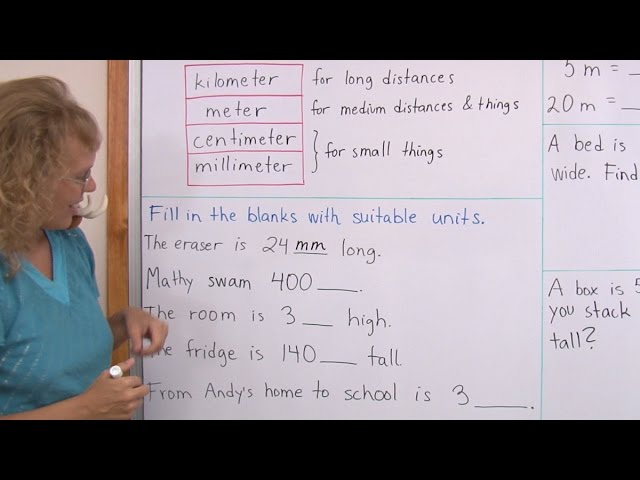 kilometer for long distances
meter for medium distances & things
centimeter
millimeter
for small things
Fill in the blanks with suitable units.
The eraser is 24 mm long.
Mathy swam 400 ____.
The room is 3 ___ high.
The fridge is 140 ___ tall.
From Andy's home to school is 3 ____.
5 m =
20 m =
A bed is
wide. Find
A box is 5
you stack
tall?